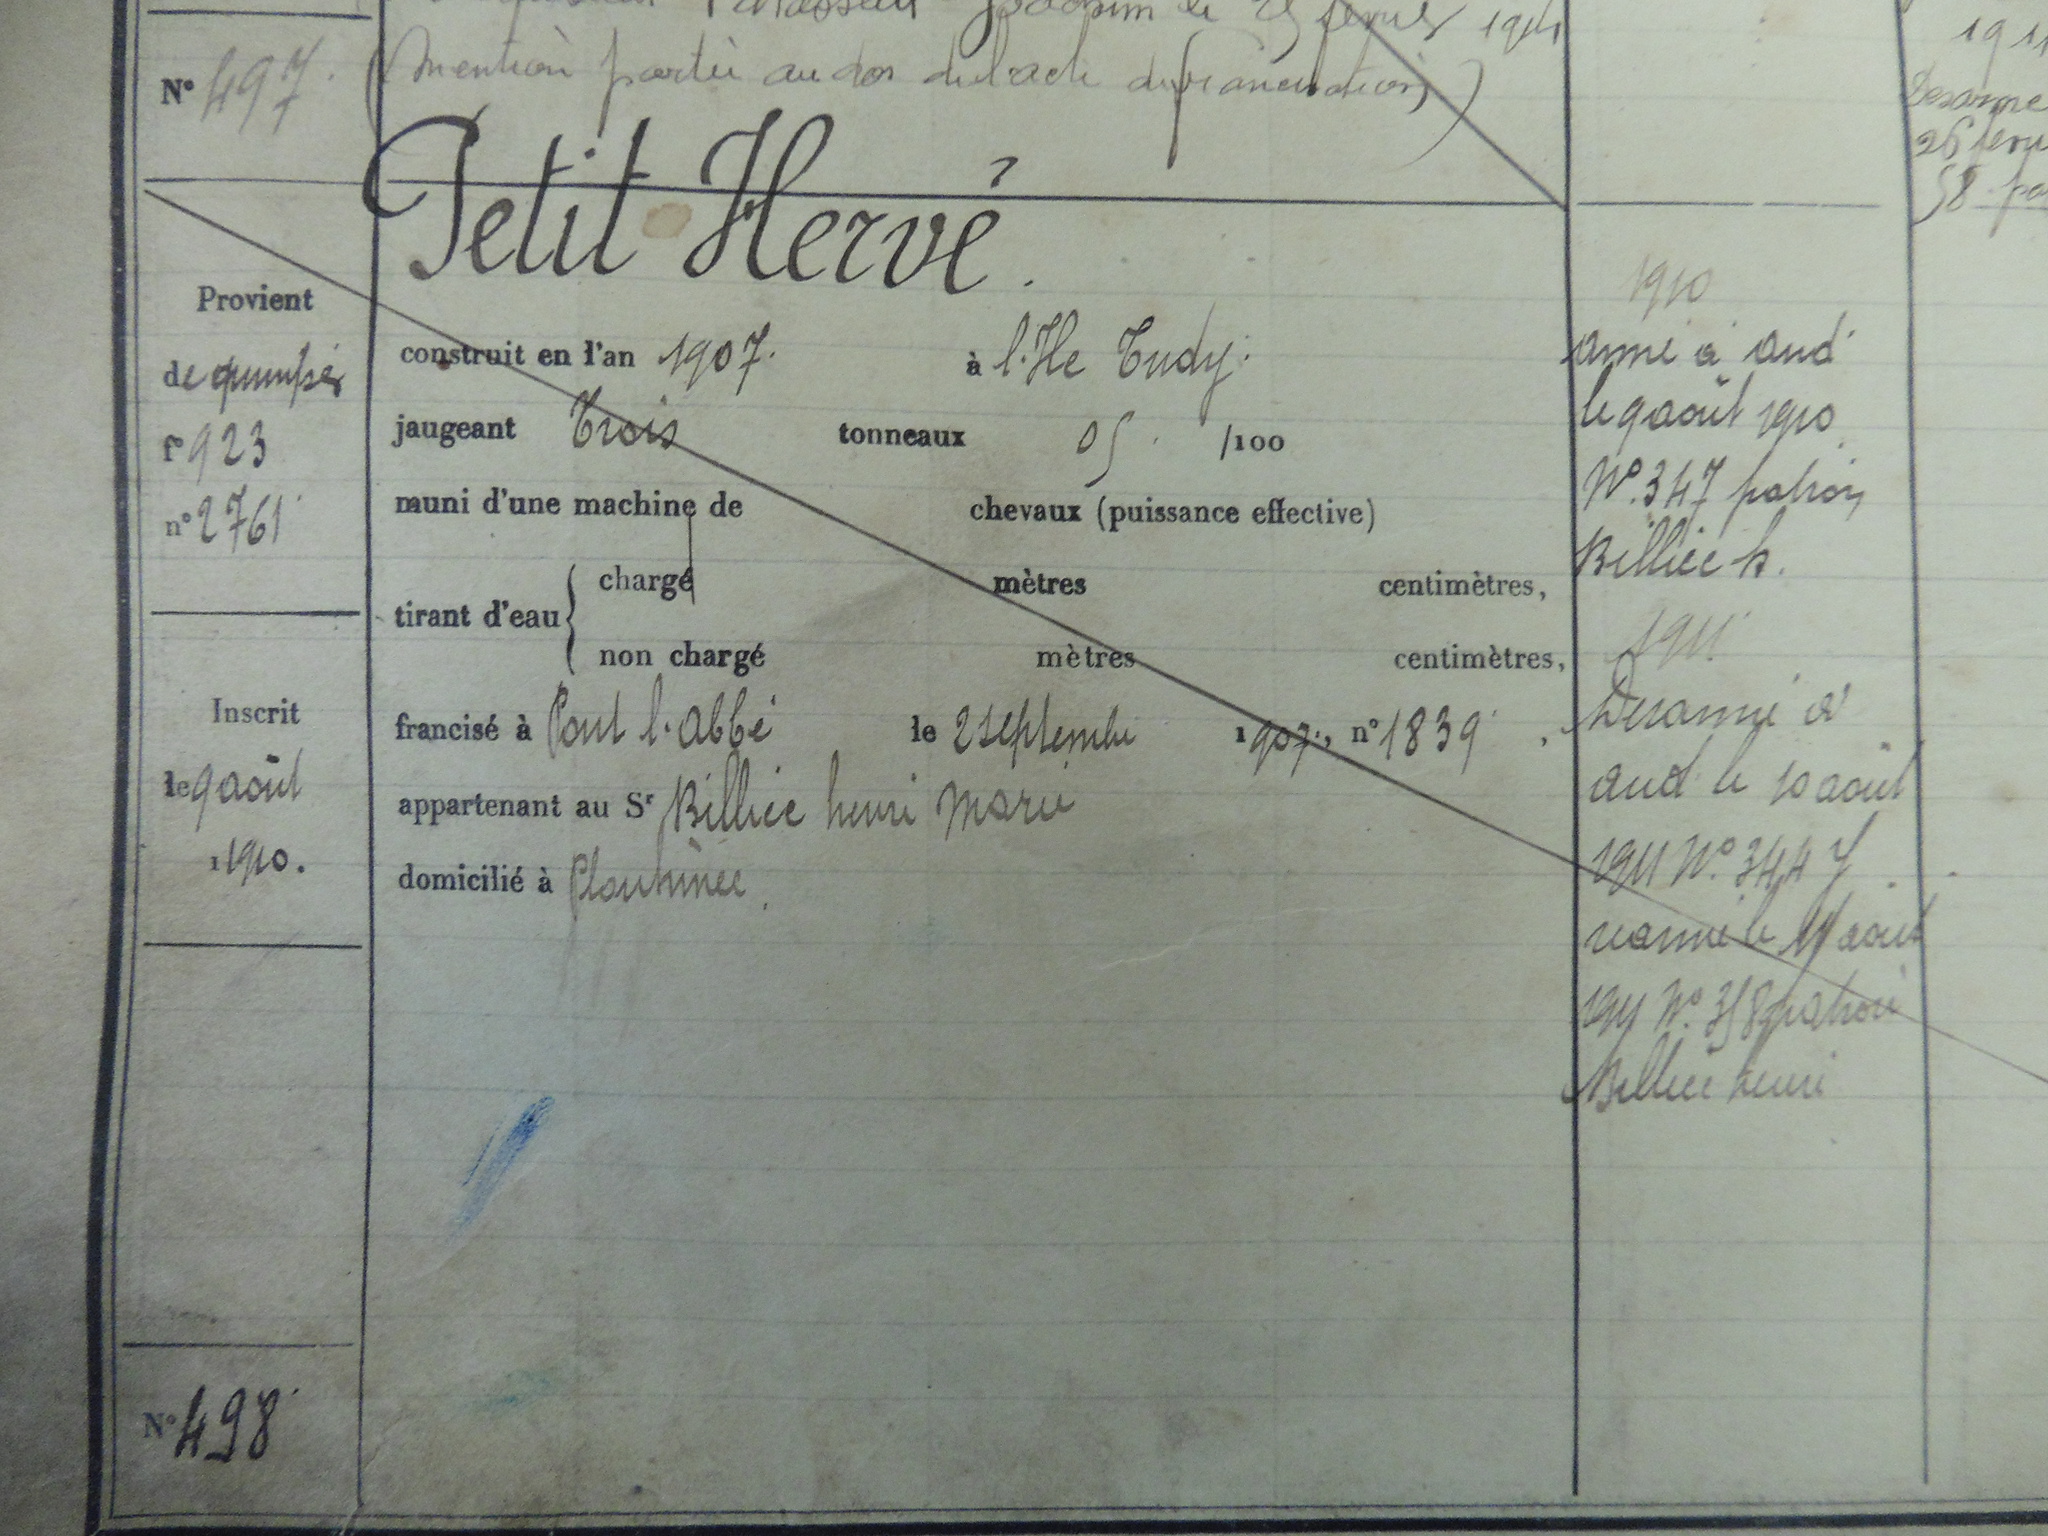 Joachim le 25 février 1914
N° 497. (Mention portée au dos de l'acte de francisation)
Petit Hervé.
Provient
de quimper
f° 923
n° 2761
Inscrit
le 9 août
1910.
N° 498
construit en l'an 1907. à l'Ile Tudy.
jaugeant Trois tonneaux 05 /100
muni d'une machine de chevaux (puissance effective)
tirant d'eau
chargé mètres centimètres,
non chargé mètres centimètres,
francisé à Pont l'Abbé le 2 septembre 1907, n° 1839,
appartenant au Sr Billiec henri Marie
domicilié à Plouhinec.
1910
armé à aud.
le 9 août 1910
N°. 347 patron
Billiec h.
1911.
Desarmé à
aud. le 10 août
1911 N°. 344
rearmé le 11 août
1911 N°. 358 patron
Billiec henri
1911
Desarmé
26 févr
58